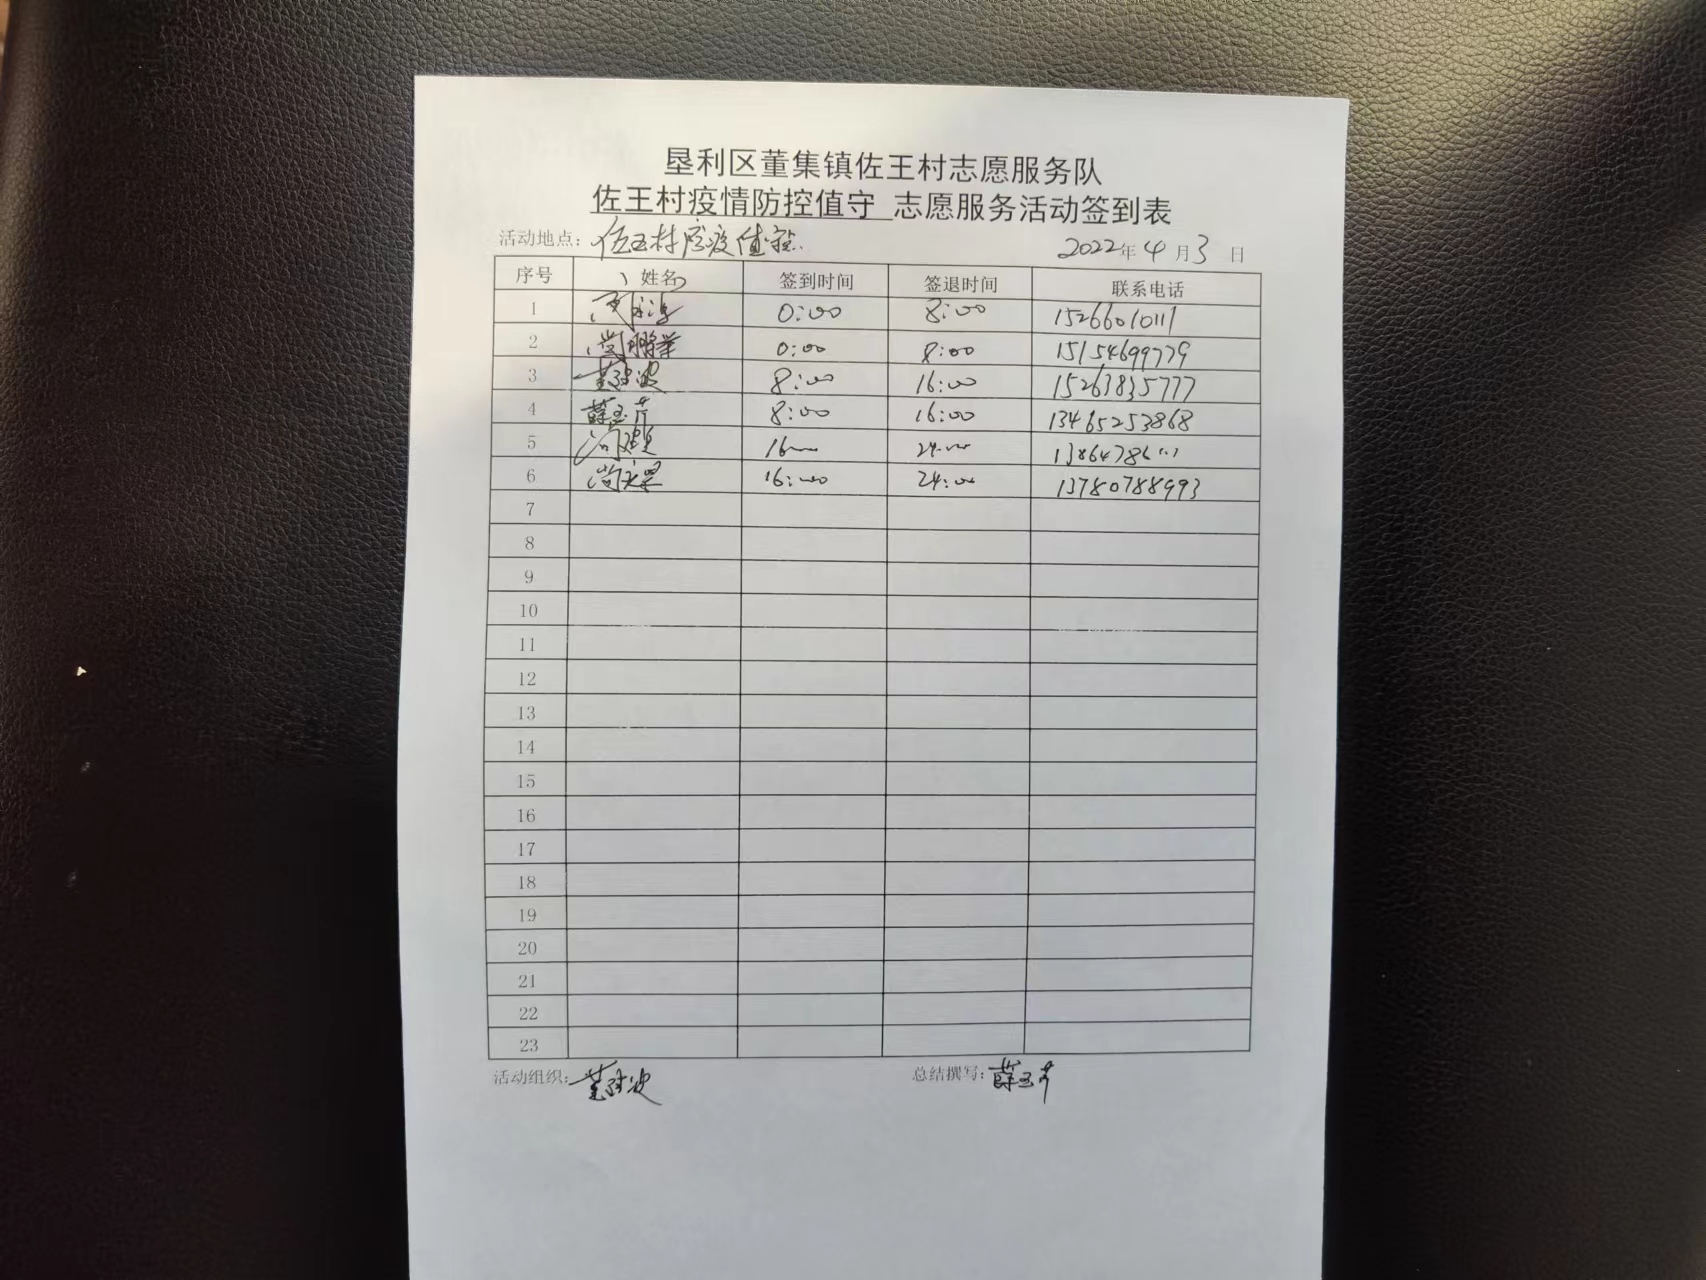 垦利区董集镇佐王村志愿服务队
佐王村疫情防控值守 志愿服务活动签到表
活动地点：佐王村防疫值 2022年4月3日
序号 姓名 签到时间 签退时间 联系电话
1 0:00 8:00 15266010111
2 尚鹏举 0:00 8:00 15154699779
3 8:00 16:00 15263835777
4 薛玉芹 8:00 16:00 13465253868
5 16:00 24:00
6 16:00 24:00 13780788993
7
8
9
10
11
12
13
14
15
16
17
18
19
20
21
22
23
活动组织： 总结撰写：薛玉芹